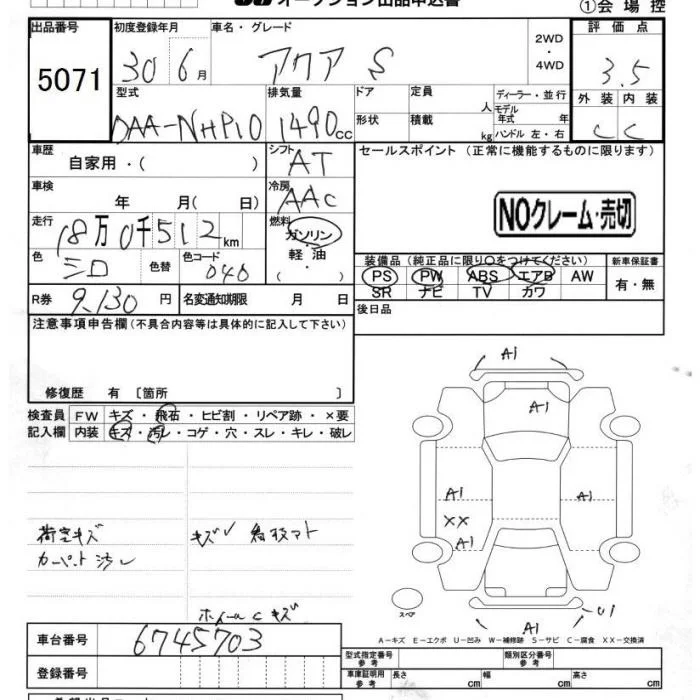 オークション出品申込書
①会場控
出品番号 初度登録年月 車名・グレード 評価点
5071 30 6月 アクア S 2WD・4WD 3.5
外装 内装
C C
型式 排気量 ドア 定員 人 ディーラー・並行
DAA-NHP10 1490cc 形状 積載 kg モデル年式 年
ハンドル 左・右
車歴 シフト セールスポイント (正常に機能するものに限ります)
自家用・( ) AT
車検 冷房
年 月( 日) AAC
NOクレーム・売切
走行 燃料
18万0千512km ガソリン
軽油
( )
色 色替 色コード
シロ 040
装備品(純正品に限り○をつけてください) 新車保証書
PS PW ABS エアB AW 有・無
SR ナビ TV カワ
R券 9,130円 名変通知期限 月 日
後日品
注意事項申告欄(不具合内容等は具体的に記入して下さい)
修復歴 有 〔箇所 〕
検査員 FW キズ・飛石・ヒビ割・リペア跡・×要
記入欄 内装 キズ・汚レ・コゲ・穴・スレ・キレ・破レ
A1
A1
A1 A1
XX
A1
荷室キズ キズ
カーペット汚レ
ホイールCキズ
スペア
A1 U1
A-キズ E-エクボ U-凹み W-補修跡 S-サビ C-腐食 XX-交換済
車台番号 6745703
型式指定番号 参考 類別区分番号 参考
登録番号
車庫証明用 参考 長さ cm 幅 cm 高さ cm